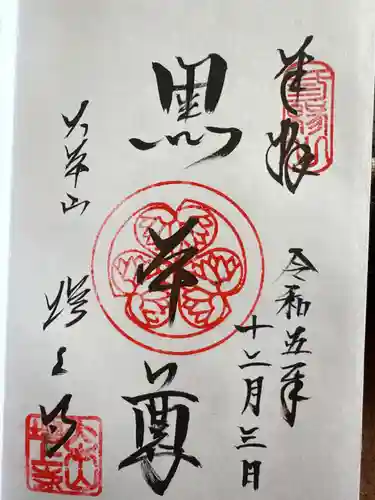 奉拝
令和五年
十二月三日
黒本尊
大本山
増上寺